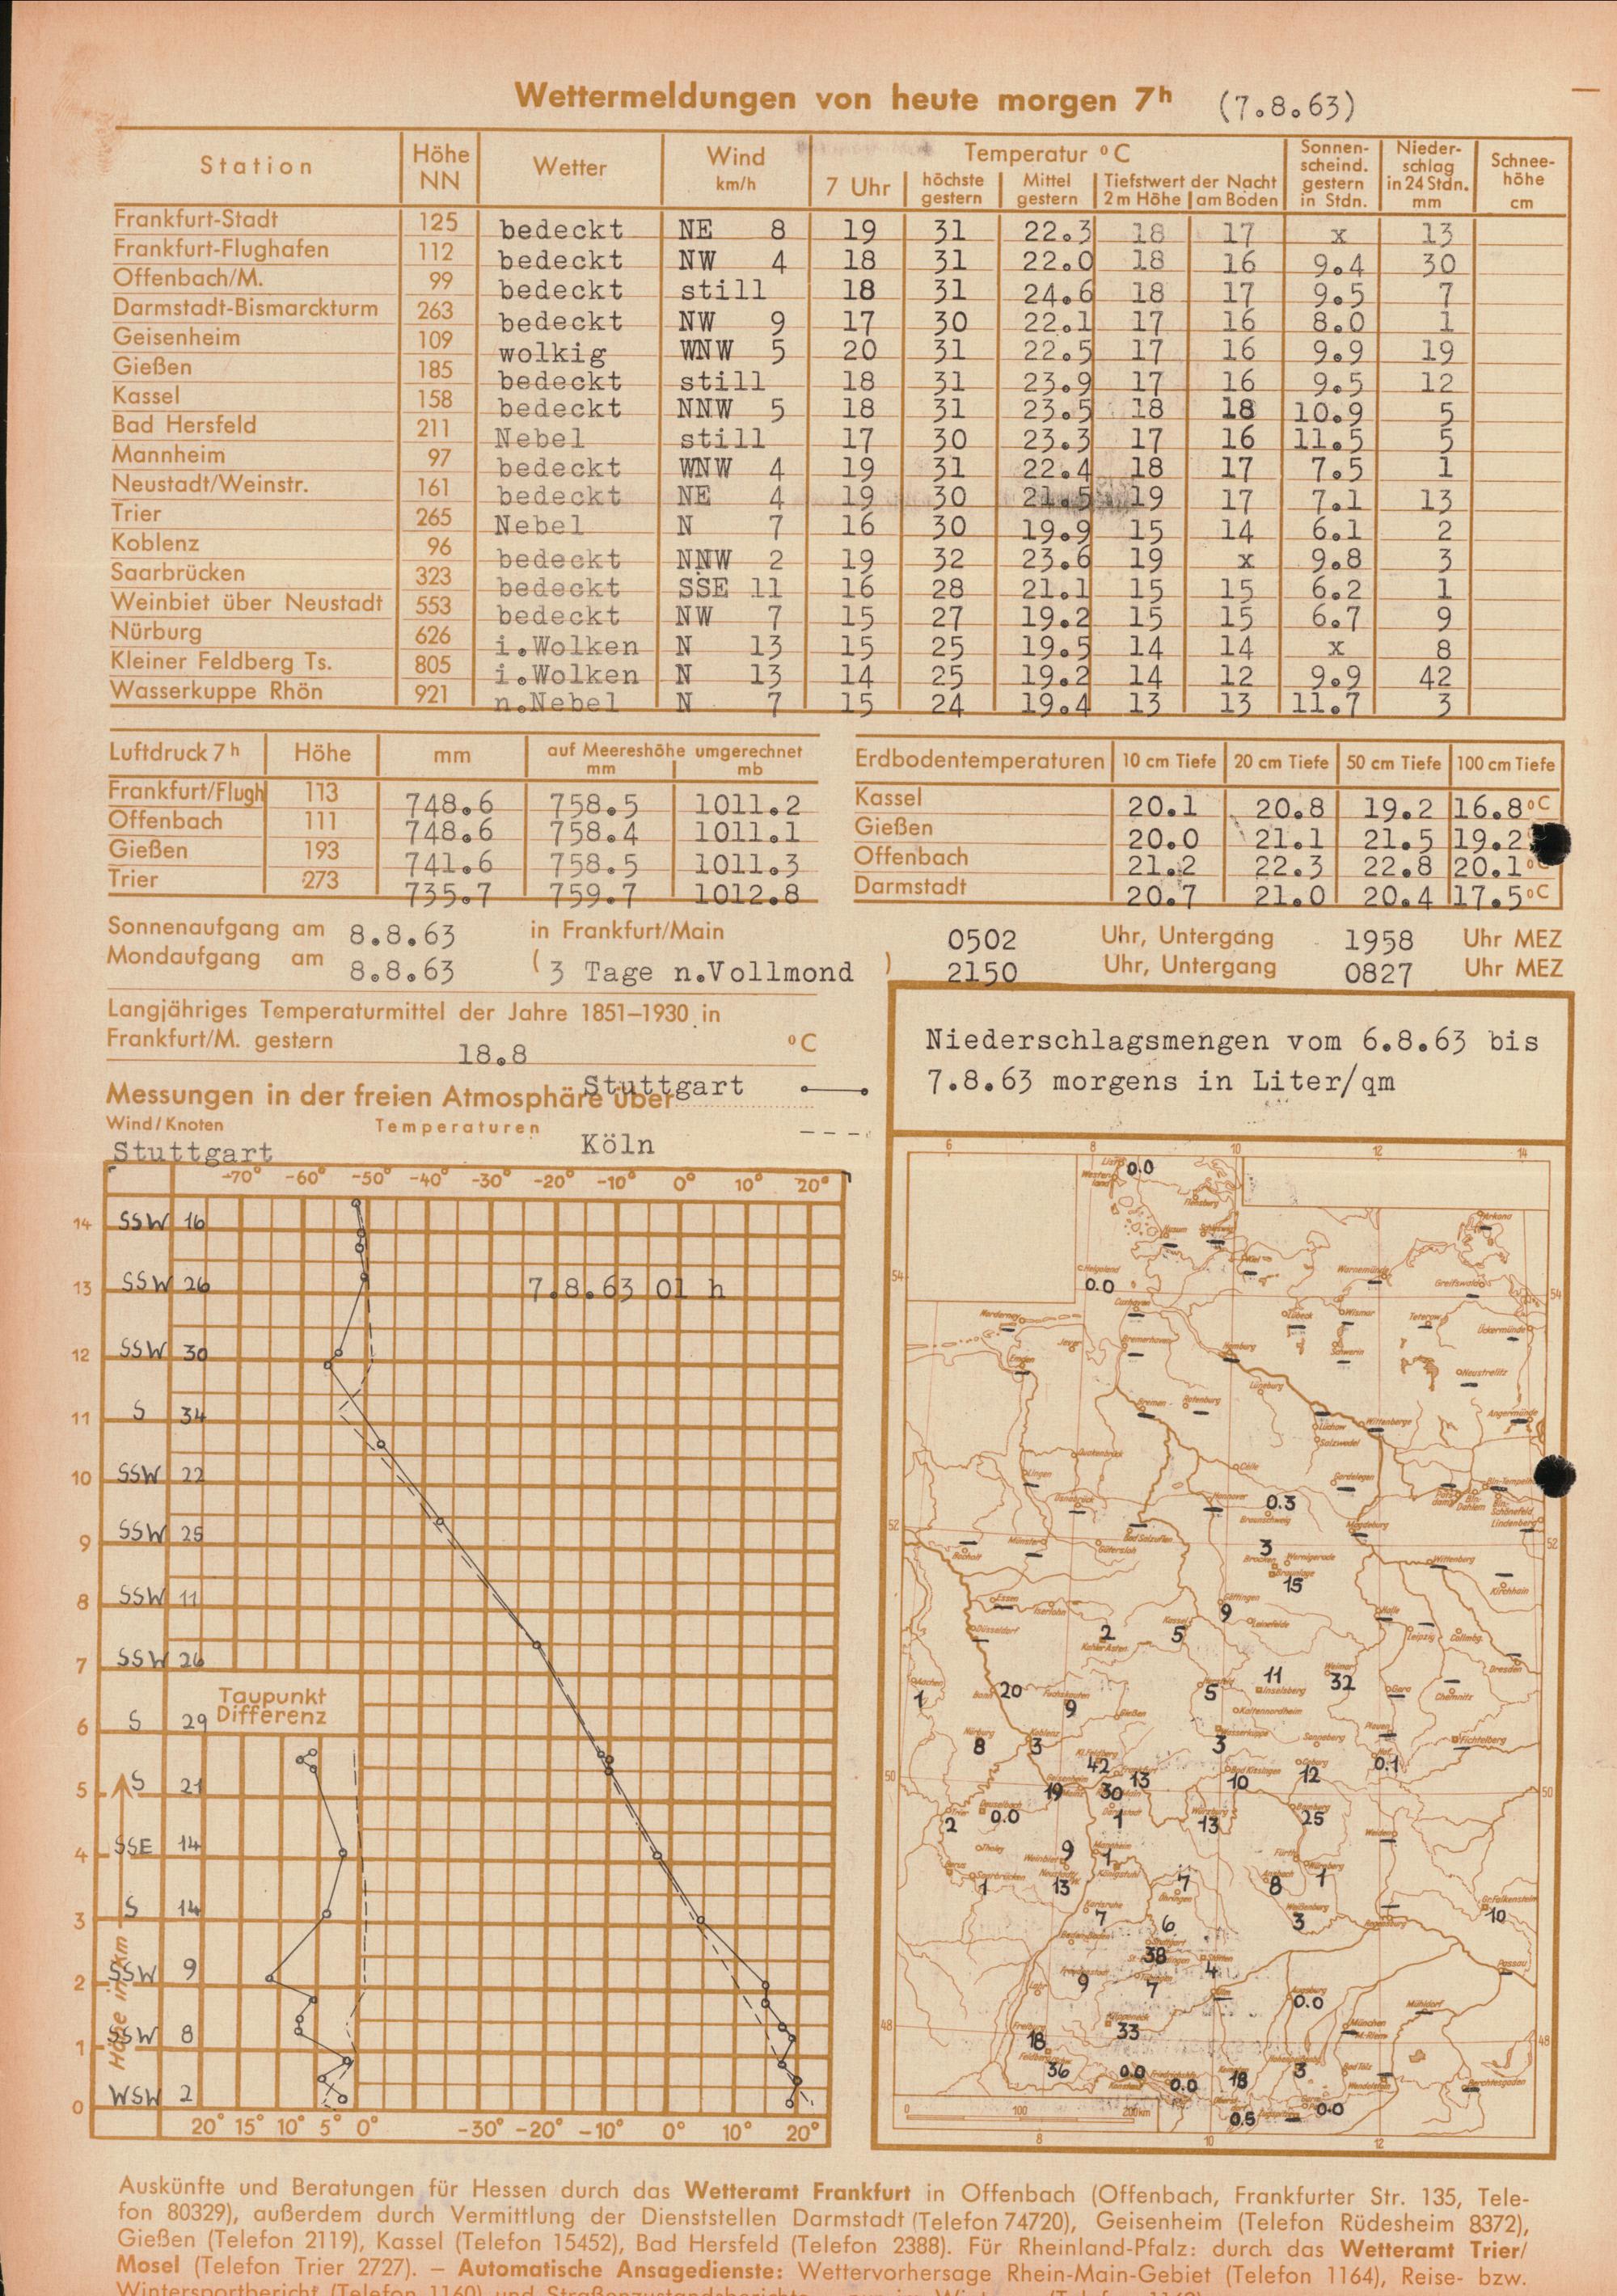 Wettermeldungen von heute morgen 7h (7.8.63)
Station Höhe NN Wetter Wind km/h Temperatur °C Sonnen-scheind. gestern in Stdn. Nieder-schlag in 24 Stdn. mm Schnee-höhe cm
7 Uhr höchste gestern Mittel gestern Tiefstwert der Nacht 2m Höhe am Boden
Frankfurt-Stadt 125 bedeckt NE 8 19 31 22.3 18 17 x 13
Frankfurt-Flughafen 112 bedeckt NW 4 18 31 22.0 18 16 9.4 30
Offenbach/M. 99 bedeckt still 18 31 24.6 18 17 9.5 7
Darmstadt-Bismarckturm 263 bedeckt NW 9 17 30 22.1 17 16 8.0 1
Geisenheim 109 wolkig WNW 5 20 31 22.5 17 16 9.9 19
Gießen 185 bedeckt still 18 31 23.9 17 16 9.5 12
Kassel 158 bedeckt NNW 5 18 31 23.5 18 18 10.9 5
Bad Hersfeld 211 Nebel still 17 30 23.3 17 16 11.5 5
Mannheim 97 bedeckt WNW 4 19 31 22.4 18 17 7.5 1
Neustadt/Weinstr. 161 bedeckt NE 4 19 30 21.5 19 17 7.1 13
Trier 265 Nebel N 7 16 30 19.9 15 14 6.1 2
Koblenz 96 bedeckt NNW 2 19 32 23.6 19 x 9.8 3
Saarbrücken 323 bedeckt SSE 11 16 28 21.1 15 15 6.2 1
Weinbiet über Neustadt 553 bedeckt NW 7 15 27 19.2 15 15 6.7 9
Nürburg 626 i.Wolken N 13 15 25 19.5 14 14 x 8
Kleiner Feldberg Ts. 805 i.Wolken N 13 14 25 19.2 14 12 9.9 42
Wasserkuppe Rhön 921 n.Nebel N 7 15 24 19.4 13 13 11.7 3
Luftdruck 7h Höhe mm auf Meereshöhe umgerechnet mm mb
Frankfurt/Flugh 113 748.6 758.5 1011.2
Offenbach 111 748.6 758.4 1011.1
Gießen 193 741.6 758.5 1011.3
Trier 273 735.7 759.7 1012.8
Erdbodentemperaturen 10 cm Tiefe 20 cm Tiefe 50 cm Tiefe 100 cm Tiefe
Kassel 20.1 20.8 19.2 16.8 °C
Gießen 20.0 21.1 21.5 19.2
Offenbach 21.2 22.3 22.8 20.1 °C
Darmstadt 20.7 21.0 20.4 17.5 °C
Sonnenaufgang am 8.8.63 in Frankfurt/Main 0502 Uhr, Untergang 1958 Uhr MEZ
Mondaufgang am 8.8.63 (3 Tage n.Vollmond) 2150 Uhr, Untergang 0827 Uhr MEZ
Langjähriges Temperaturmittel der Jahre 1851–1930 in
Frankfurt/M. gestern 18.8 °C
Messungen in der freien Atmosphäre über Stuttgart
Wind/Knoten Temperaturen Köln
Stuttgart
-70° -60° -50° -40° -30° -20° -10° 0° 10° 20°
14 SSW 16
13 SSW 26 7.8.63 01 h
12 SSW 30
11 S 34
10 SSW 22
9 SSW 25
8 SSW 11
7 SSW 26
Taupunkt
Differenz
6 S 29
5 S 21
4 SSE 14
3 S 14
2 SSW 9
1 SSW 8
0 WSW 2
Höhe in km
20° 15° 10° 5° 0° -30° -20° -10° 0° 10° 20°
Niederschlagsmengen vom 6.8.63 bis
7.8.63 morgens in Liter/qm
6 8 10 12 14
0.0
Helgoland
0.0
54 54
Cuxhaven
Norderney
Bremerhaven
Hamburg
Emden
Lüneburg
Bremen Rotenburg
Wittenberge Angermünde
Salzwedel
Lingen Celle Gardelegen
Osnabrück Hannover 0.3
Braunschweig Magdeburg Lindenberg
52 52
Münster Gütersloh Bad Salzuflen 3
Bocholt Brocken Wernigerode Wittenberg
Braunlage 15 Kirchhain
Essen Iserlohn Göttingen 9 Halle
Düsseldorf 2 Kassel 5 Leinefelde Leipzig
Kahler Asten Dresden
Aachen 1 20 9 5 11 Inselsberg Weimar 32 Gera Chemnitz
Gießen Kaltennordheim
Nürburg 8 Koblenz 3 Wasserkuppe 3 Sonneberg Plauen Fichtelberg
42 13 10 Bad Kissingen Coburg 12 Hof 0.1
50 50
Geisenheim 19 30
Trier 2 0.0 1 Würzburg 13 Bamberg 25 Weiden
9 Mannheim 1 Fürth Nürnberg
Saarbrücken 1 13 7 Öhringen 8 1
Karlsruhe 7 6 Weißenburg 3 Regensburg Gr.Falkenstein 10
38 4 Passau
9 7 Ulm Augsburg 0.0 Mühldorf
48 48
Freiburg 18 33 München
36 0.0 0.0 18 3 Bad Tölz Berchtesgaden
0.5 0.0
0 100 200km
8 10 12
Auskünfte und Beratungen für Hessen durch das Wetteramt Frankfurt in Offenbach (Offenbach, Frankfurter Str. 135, Tele-
fon 80329), außerdem durch Vermittlung der Dienststellen Darmstadt (Telefon 74720), Geisenheim (Telefon Rüdesheim 8372),
Gießen (Telefon 2119), Kassel (Telefon 15452), Bad Hersfeld (Telefon 2388). Für Rheinland-Pfalz: durch das Wetteramt Trier/
Mosel (Telefon Trier 2727). – Automatische Ansagedienste: Wettervorhersage Rhein-Main-Gebiet (Telefon 1164), Reise- bzw.
Wintersportbericht (Telefon 1160) und Straßenzustandsberichte